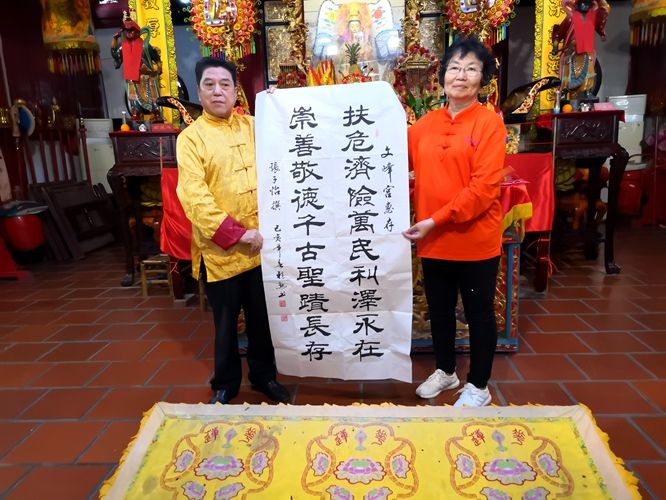 文峰宮惠存
扶危濟險萬民利澤永在
崇善敬德千古聖蹟長存
張子怡撰
己亥年